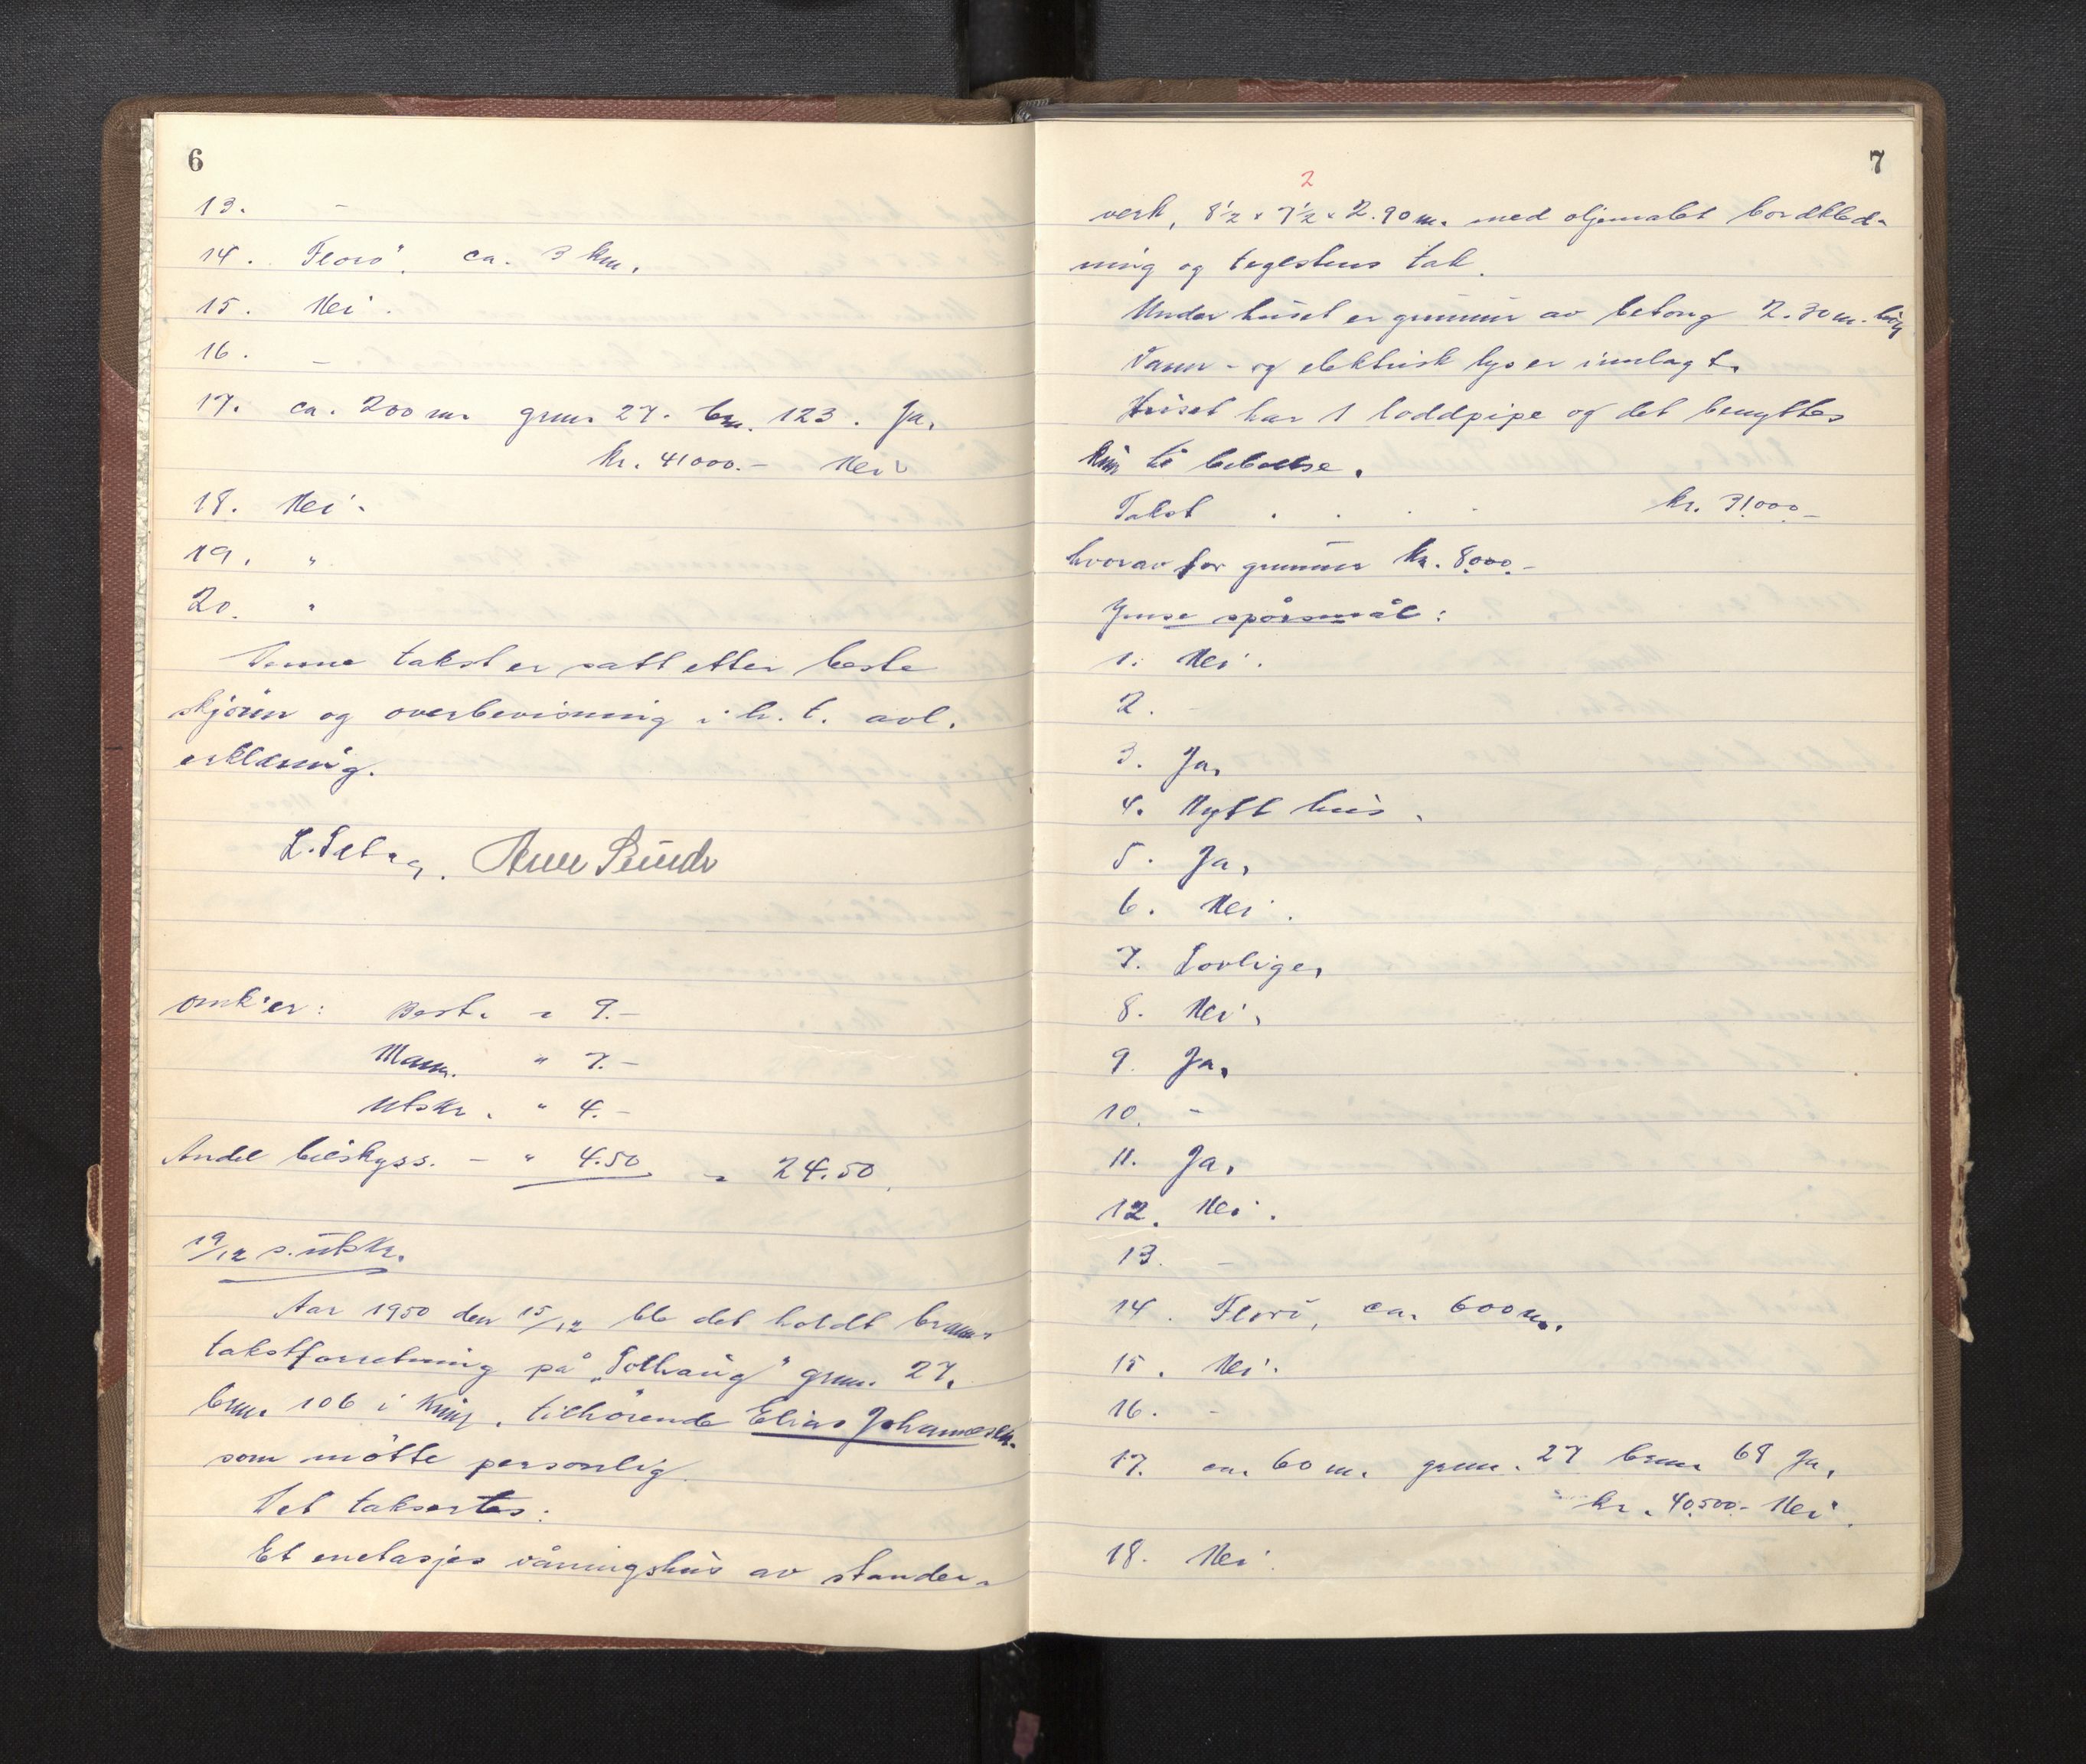 6
13. -
14. Florö, ca. 3 km.
15. Nei.
16. -
17. ca. 200 m. gnr. 27. bnr. 123. Ja.
kr. 41000.- Nei
18. Nei.
19. "
20. "
Denne takst er satt etter beste
skjönn og overbevisning i h. t. avl.
erklæring.
omk'er: Best. = 9.-
Mann. " 7.-
Utskr. " 4.-
Andel bilskyss. - " 4.50 = 24.50.
19/12 s. utskr.
Aar 1950 den 15/12 ble det holdt brann-
takstforretning på "Solhaug" gnr. 27.
bnr. 106 i Kinn, tilhörende Elias Johannessen.
som mötte personlig.
Det taksertes:
Et enetasjes våningshus av stander-
7
2
verk, 8½ x 7½ x 2.90 m. med oljemalet bordkled-
ning og teglstens tak.
Under huset er grunnur av betong 2.30 m. höy
Vann- og elektrisk lys er innlagt.
Huset har 1 loddpipe og det benyttes
kun til beboelse.
Takst . . . . kr. 31.000.-
hvorav for grunnur kr. 8.000.-
Ymse spörsmål:
1. Nei.
2. -
3. Ja.
4. Nytt hus.
5. Ja.
6. Nei.
7. Lovlige.
8. Nei.
9. Ja.
10. -
11. Ja.
12. Nei.
13. -
14. Florö, ca. 600 m.
15. Nei.
16. -
17. ca. 60 m. gnr. 27 bnr. 68 Ja.
kr. 40.500.- Nei.
18. Nei.